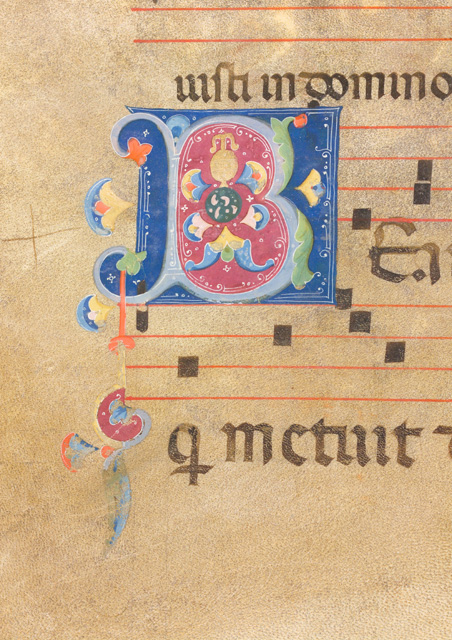 uisti in domino
BEA
ꝗ metuit